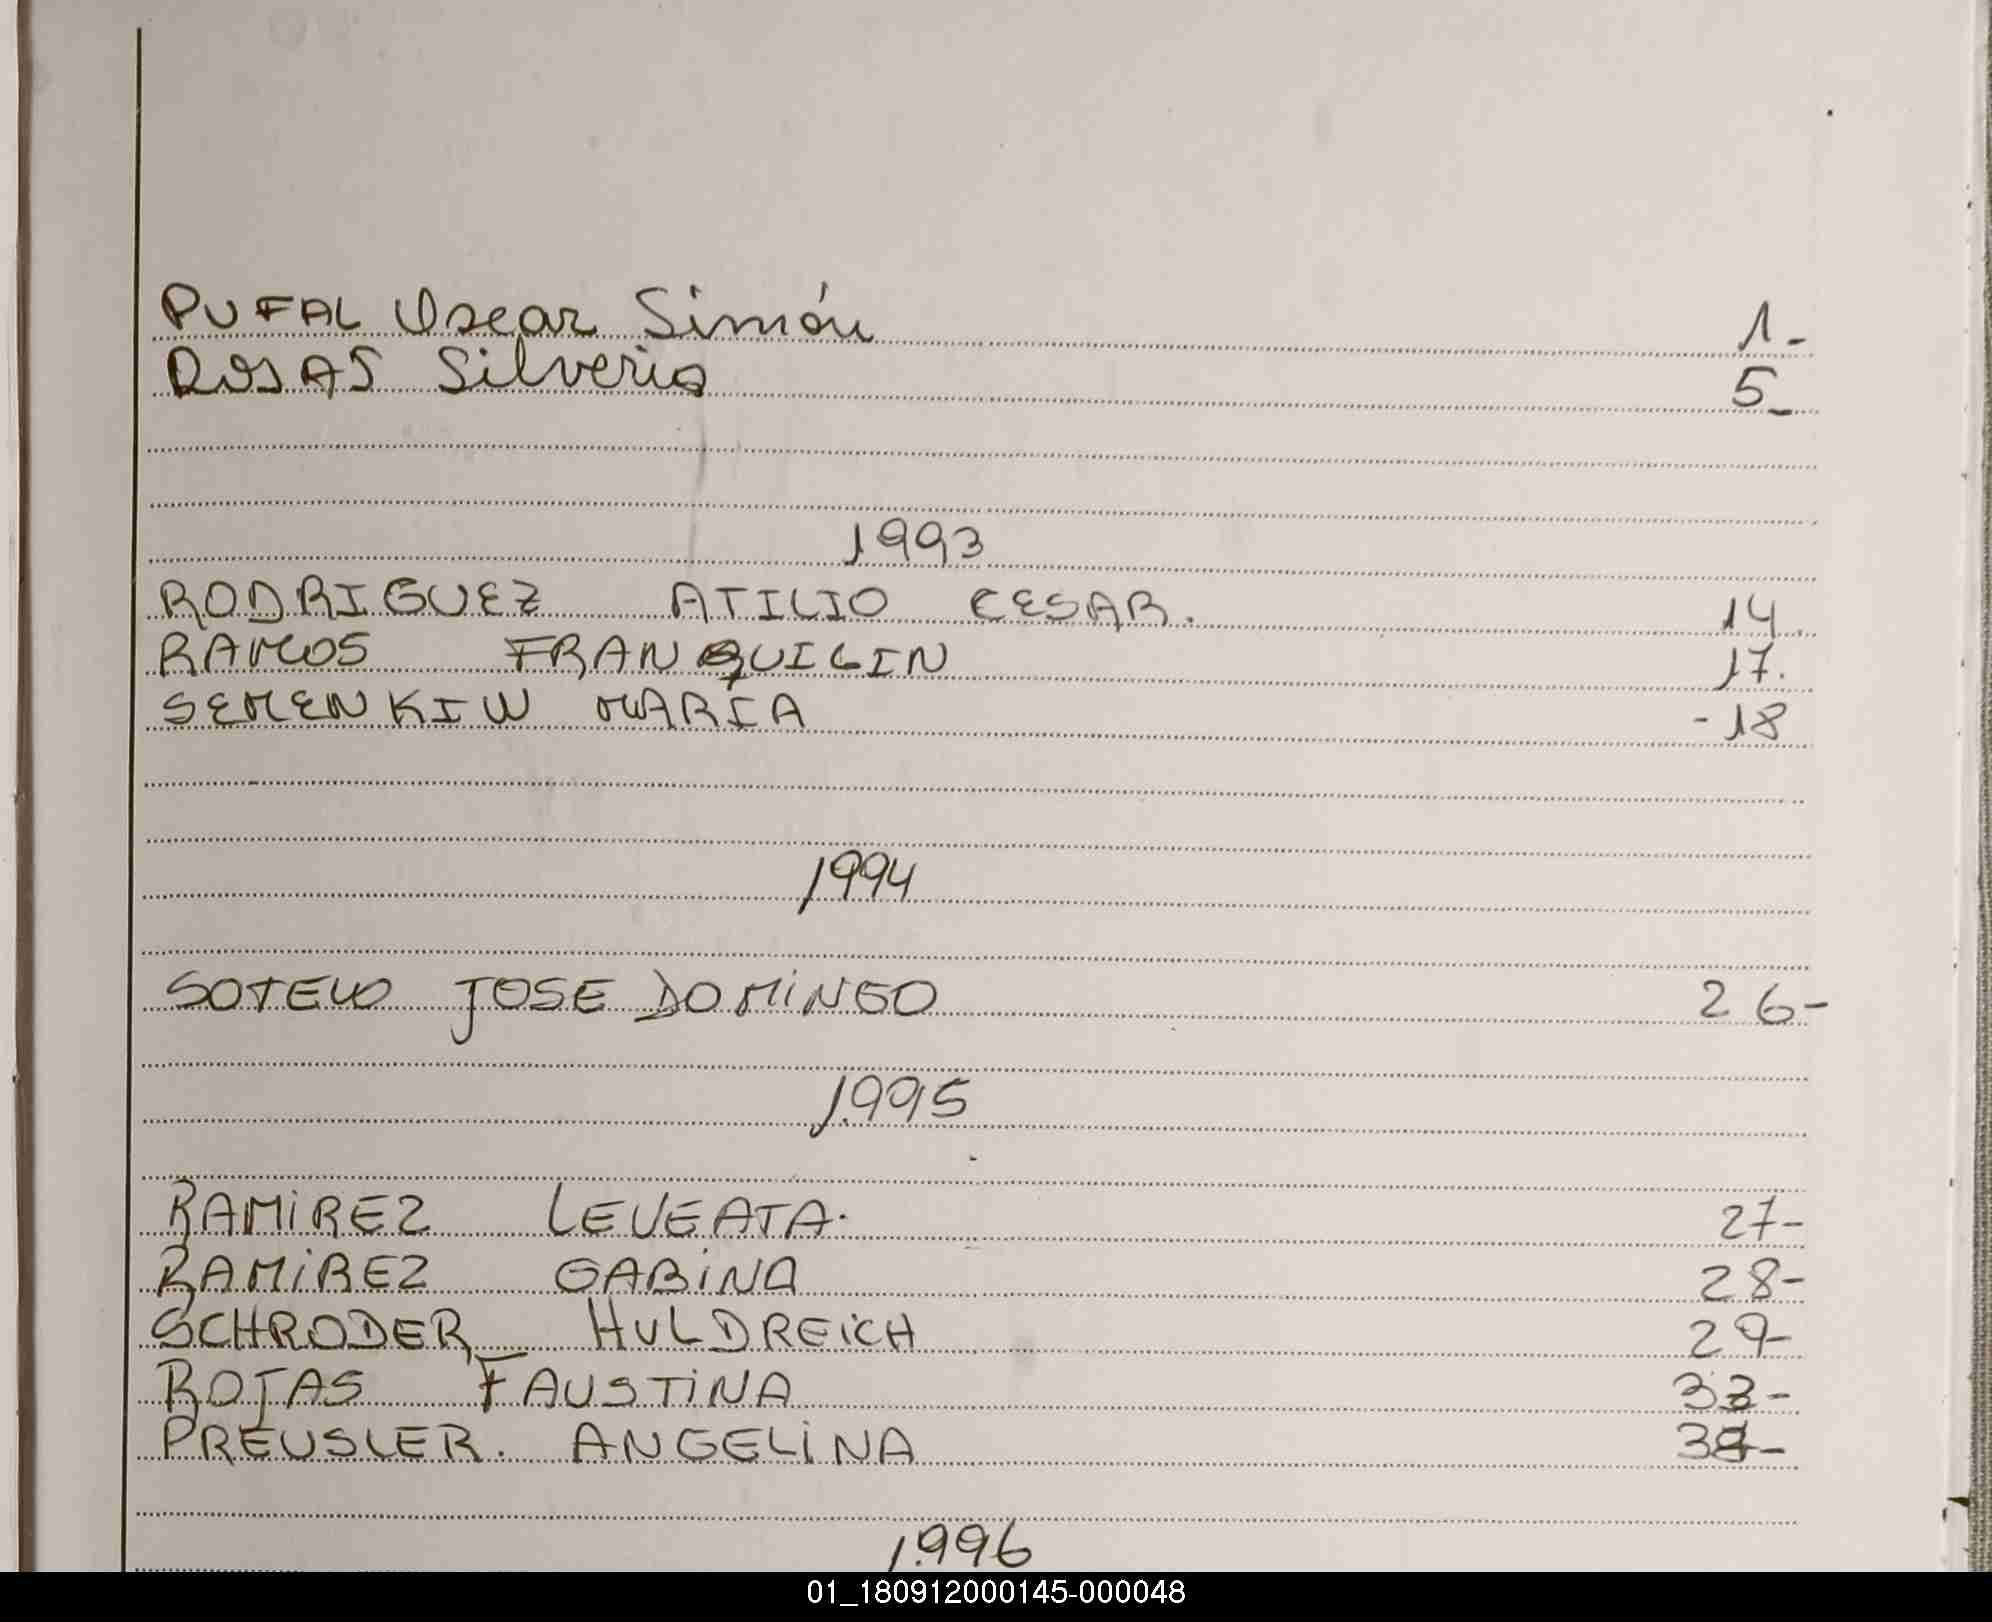 PUFAL Oscar Simón 1-
ROSAS Silverio 5-
1993
RODRIGUEZ ATILIO CESAR. 14.
RAMOS FRANQUILIN 17.
SEMENKIW MARIA -18
1994
SOTELO JOSE DOMINGO 26-
1995
RAMIREZ LEVEATA. 27-
RAMIREZ GABINA 28-
SCHRODER HULDREICH 29-
ROJAS FAUSTINA
PREUSLER. ANGELINA
1996
01_180912000145-000048